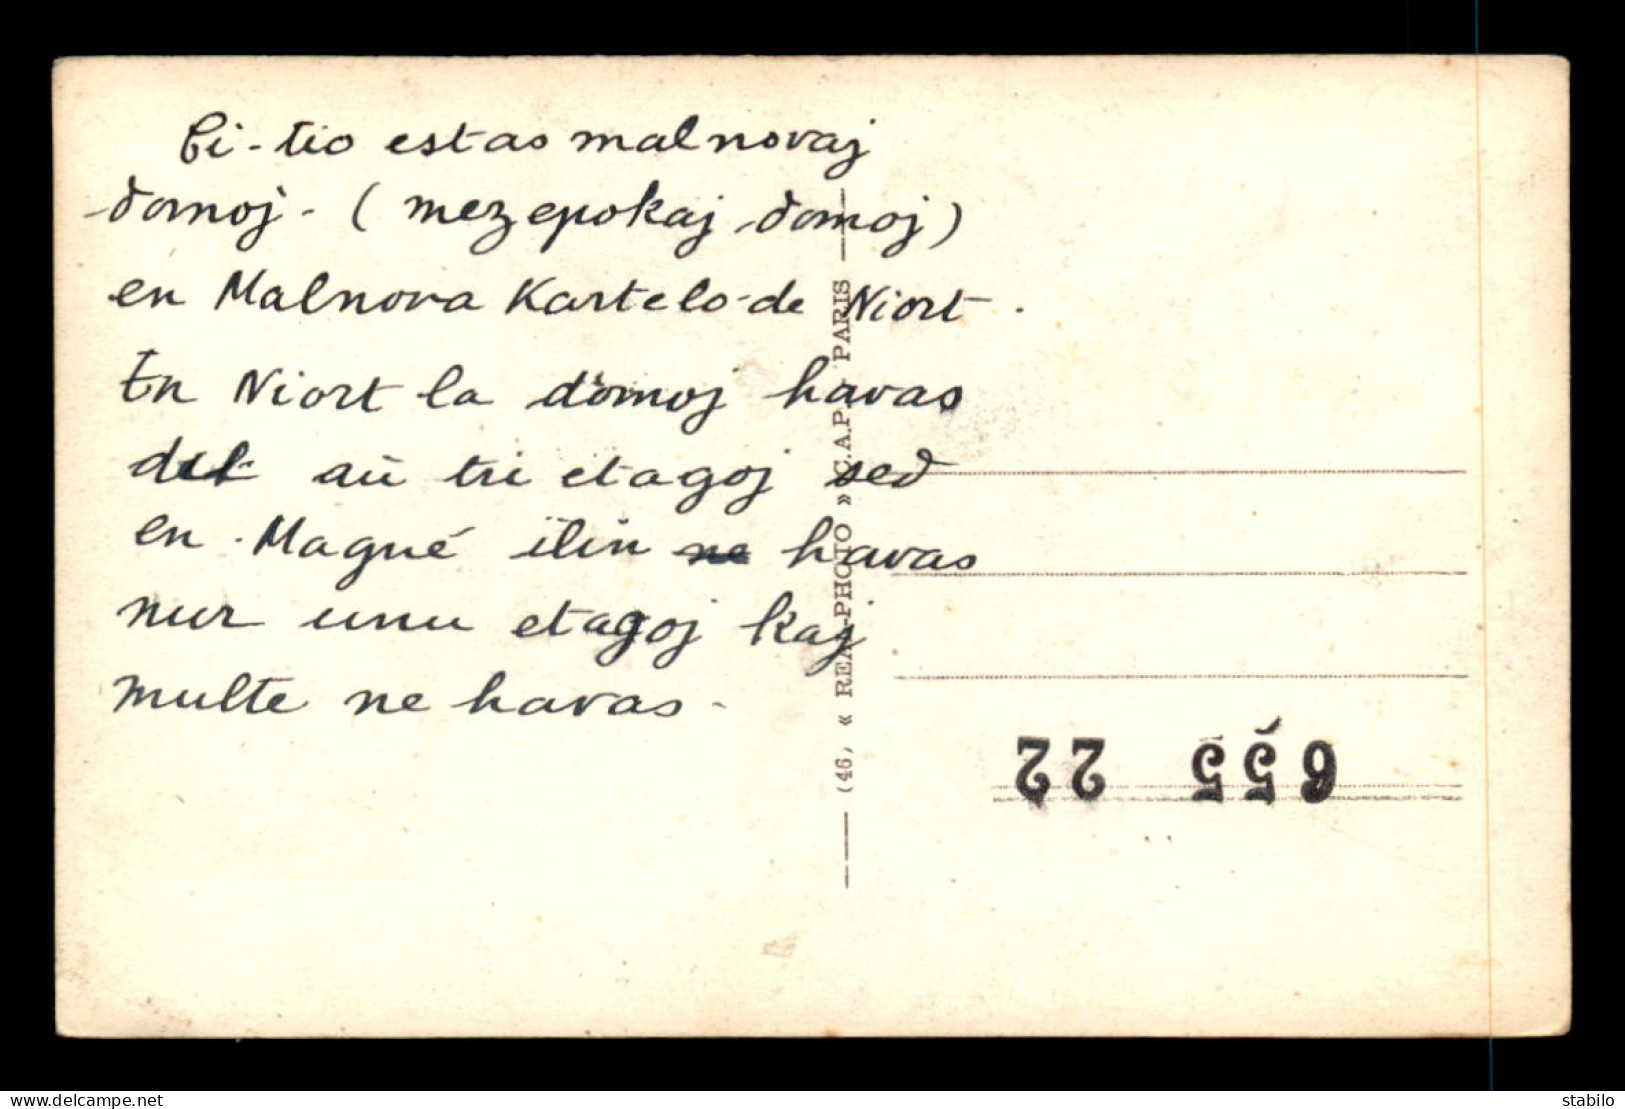 Ĉi-tio estas malnovaj
domoj - (mezepokaj domoj)
en Malnova Kartelo de Niort.
En Niort la domoj havas
aŭ tri etagoj sed
en Magné ilin ne havas
nur unu etagoj kaj
multe ne havas.
(46) « REAL-PHOTO » C.A.P. PARIS
655 22
delcampe.net
stabilo